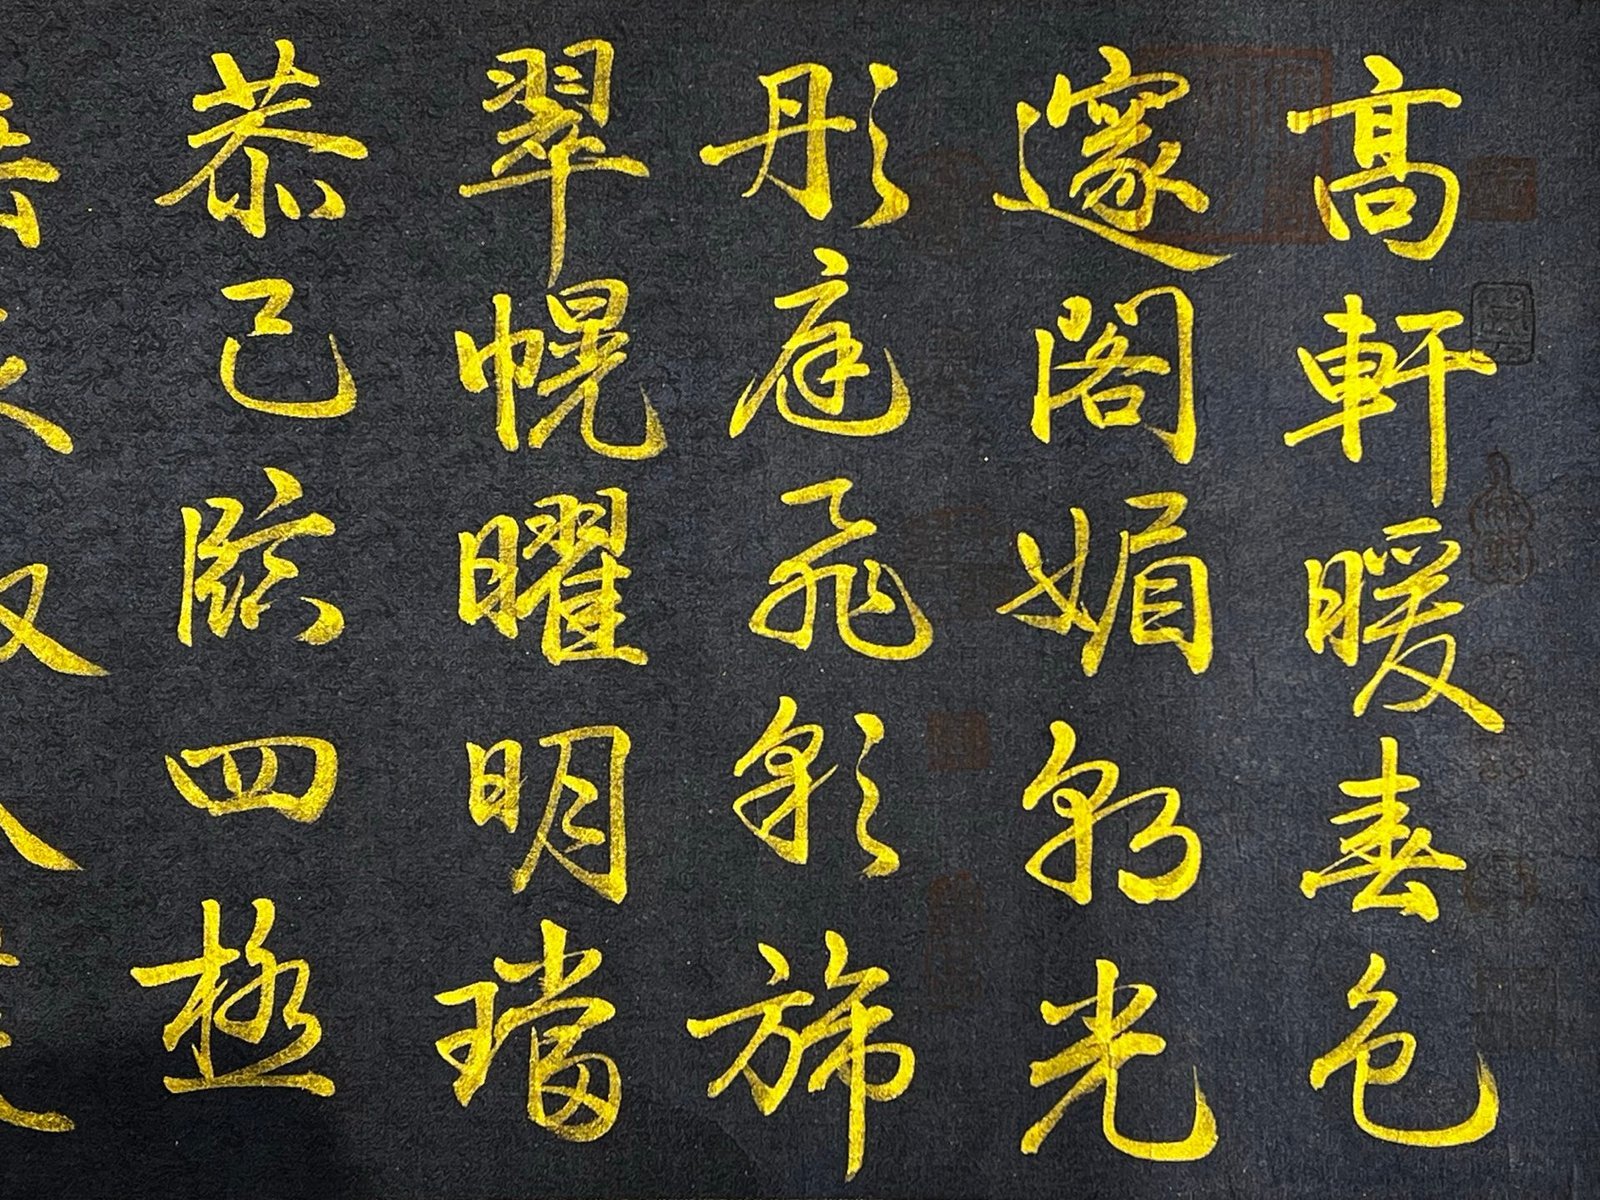 高軒暖春色
邃閣媚朝光
彤庭飛彩旆
翠幌曜明璫
恭己臨四極